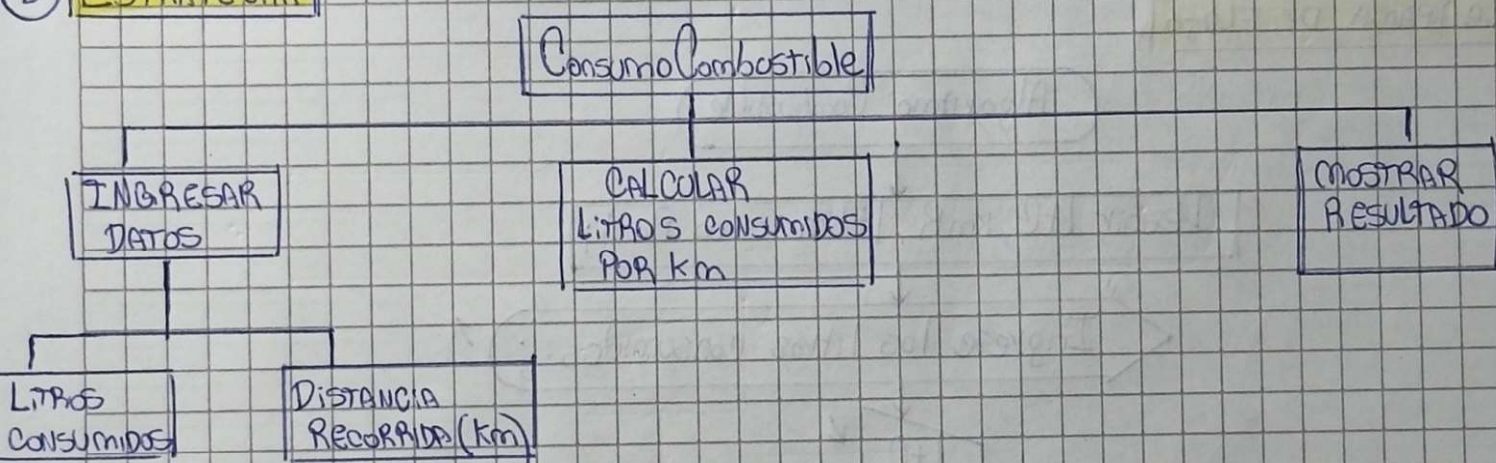 ConsumoCombustible
INGRESAR
DATOS
CALCULAR
LITROS CONSUMIDOS
POR Km
MOSTRAR
RESULTADO
LITROS
CONSUMIDOS
DISTANCIA
RECORRIDA (Km)